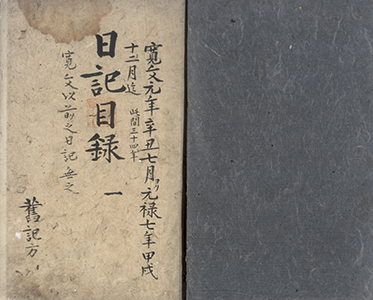 寛文元年辛丑七月ゟ元禄七年甲戌
十二月迄
此間三十四年
日記目録 一
寛文以前之日記無之
舊記方